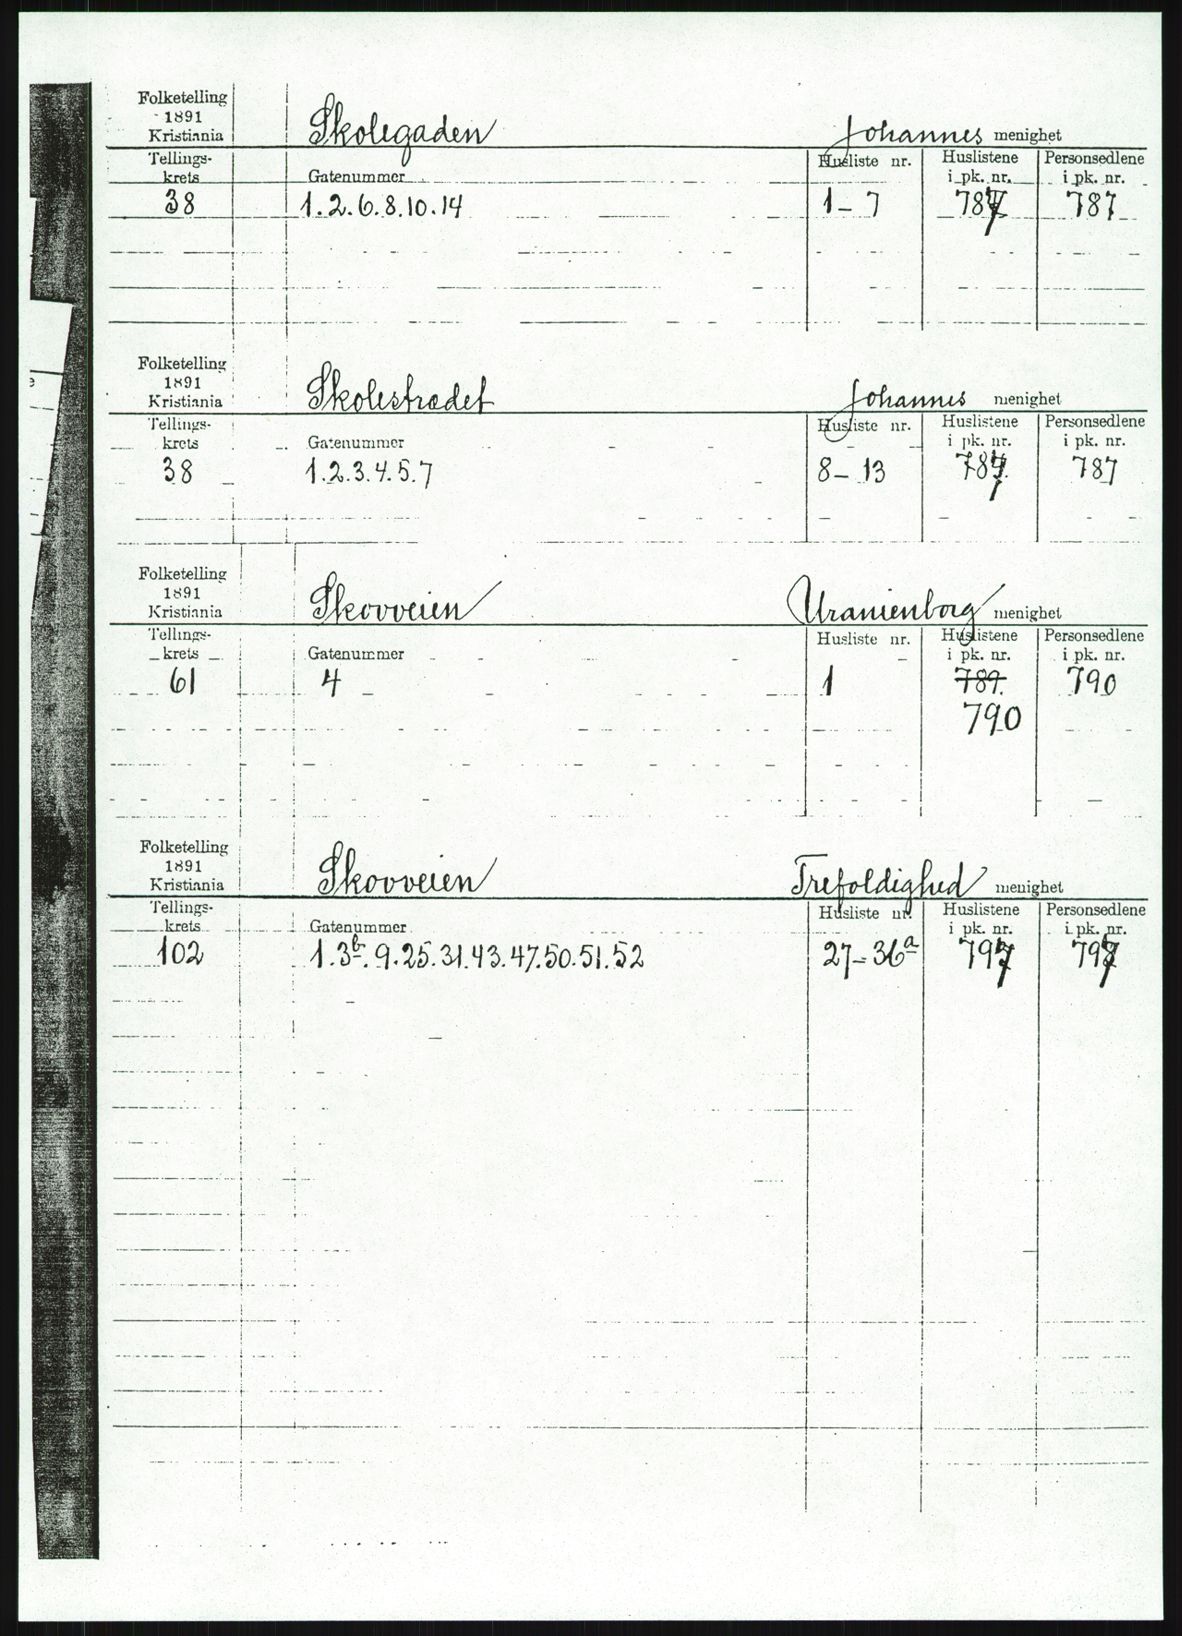 Folketelling
1891
Kristiania
Skolegaden
Johannes menighet
Tellings-
krets
Gatenummer
Husliste nr.
Huslistene
i pk. nr.
Personsedlene
i pk. nr.
38
1.2.6.8.10.14
1-7
787
787
Folketelling
1891
Kristiania
Skolestrædet
Johannes menighet
Tellings-
krets
Gatenummer
Husliste nr.
Huslistene
i pk. nr.
Personsedlene
i pk. nr.
38
1.2.3.4.5.7
8-13
787
787
Folketelling
1891
Kristiania
Skovveien
Uranienborg menighet
Tellings-
krets
Gatenummer
Husliste nr.
Huslistene
i pk. nr.
Personsedlene
i pk. nr.
61
4
1
789.
790
790
Folketelling
1891
Kristiania
Skovveien
Trefoldighed menighet
Tellings-
krets
Gatenummer
Husliste nr.
Huslistene
i pk. nr.
Personsedlene
i pk. nr.
102
1.3b.9.25.31.43.47.50.51.52
27-36a
797
797